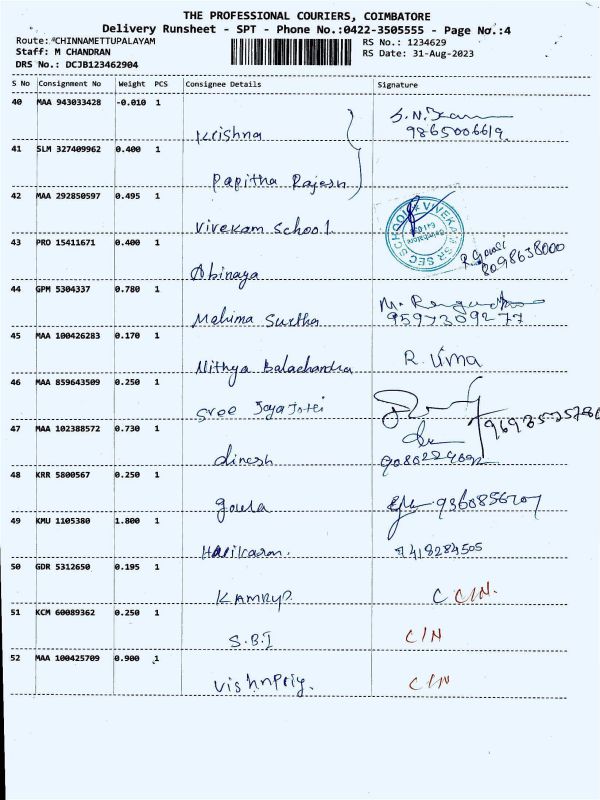 THE PROFESSIONAL COURIERS, COIMBATORE
Delivery Runsheet - SPT - Phone No.:0422-3505555 - Page No.:4
Route: *CHINNAMETTUPALAYAM RS No.: 1234629
Staff: M CHANDRAN RS Date: 31-Aug-2023
DRS No.: DCJB123462904
S No Consignment No Weight PCS Consignee Details Signature
40 MAA 943033428 -0.010 1
Krishna 9865006619
41 SLM 327409962 0.400 1
Papitha Rajesh
42 MAA 292850597 0.495 1
Vivekam School
43 PRO 15411671 0.400 1
Abinaya 8098638000
44 GPM 5304337 0.780 1
Mahima Surtha 9597309277
45 MAA 100426283 0.170 1
Nithya Balachandra R. Uma
46 MAA 859643509 0.250 1
Sree
47 MAA 102388572 0.730 1
dinesh
48 KRR 5800567 0.250 1
gowla
49 KMU 1105380 1.800 1
Harikaran. 7418284505
50 GDR 5312650 0.195 1
KAMRYP C C/N.
51 KCM 60089362 0.250 1
S.B.I C/N
52 MAA 100425709 0.900 1
VishnPriy. C/N